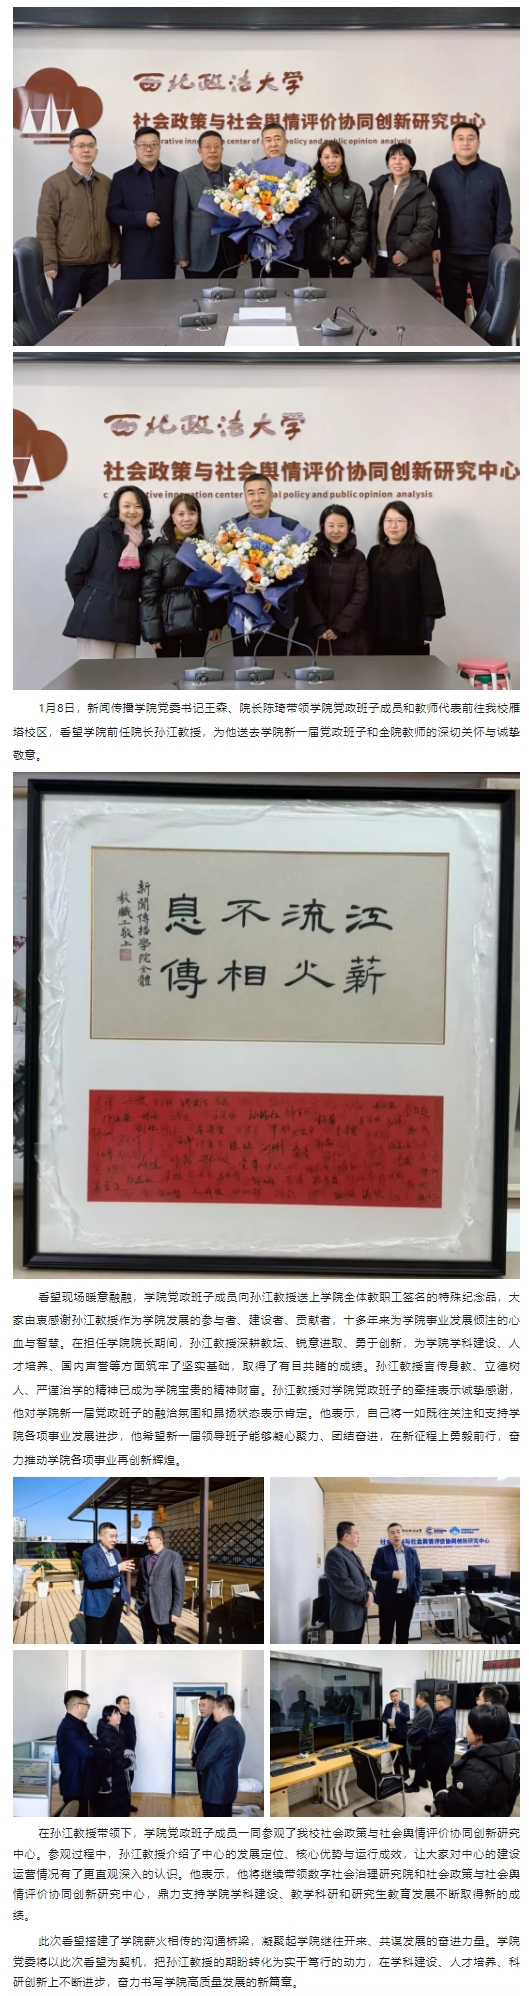 西北政法大学
社会政策与社会舆情评价协同创新研究中心
erative innovation center of s policy and public opinion analysis
西北政法大学
社会政策与社会舆情评价协同创新研究中心
c tive innovation center al policy and public opinion analysis
1月8日，新闻传播学院党委书记王森、院长陈琦带领学院党政班子成员和教师代表前往我校雁
塔校区，看望学院前任院长孙江教授，为他送去学院新一届党政班子和全院教师的深切关怀与诚挚
敬意。
江流不息
薪火相傳
新聞傳播學院全體
教職工敬上
看望现场暖意融融，学院党政班子成员向孙江教授送上学院全体教职工签名的特殊纪念品，大
家由衷感谢孙江教授作为学院发展的参与者、建设者、贡献者，十多年来为学院事业发展倾注的心
血与智慧。在担任学院院长期间，孙江教授深耕教坛、锐意进取、勇于创新，为学院学科建设、人
才培养、国内声誉等方面筑牢了坚实基础，取得了有目共睹的成绩。孙江教授言传身教、立德树
人、严谨治学的精神已成为学院宝贵的精神财富。孙江教授对学院党政班子的牵挂表示诚挚感谢，
他对学院新一届党政班子的融洽氛围和昂扬状态表示肯定。他表示，自己将一如既往关注和支持学
院各项事业发展进步，他希望新一届领导班子能够凝心聚力、团结奋进，在新征程上勇毅前行，奋
力推动学院各项事业再创新辉煌。
社会政策与社会舆情评价协同创新研究中心
在孙江教授带领下，学院党政班子成员一同参观了我校社会政策与社会舆情评价协同创新研究
中心。参观过程中，孙江教授介绍了中心的发展定位、核心优势与运行成效，让大家对中心的建设
运营情况有了更直观深入的认识。他表示，他将继续带领数字社会治理研究院和社会政策与社会舆
情评价协同创新研究中心，鼎力支持学院学科建设、教学科研和研究生教育发展不断取得新的成
绩。
此次看望搭建了学院薪火相传的沟通桥梁，凝聚起学院继往开来、共谋发展的奋进力量。学院
党委将以此次看望为契机，把孙江教授的期盼转化为实干笃行的动力，在学科建设、人才培养、科
研创新上不断进步，奋力书写学院高质量发展的新篇章。